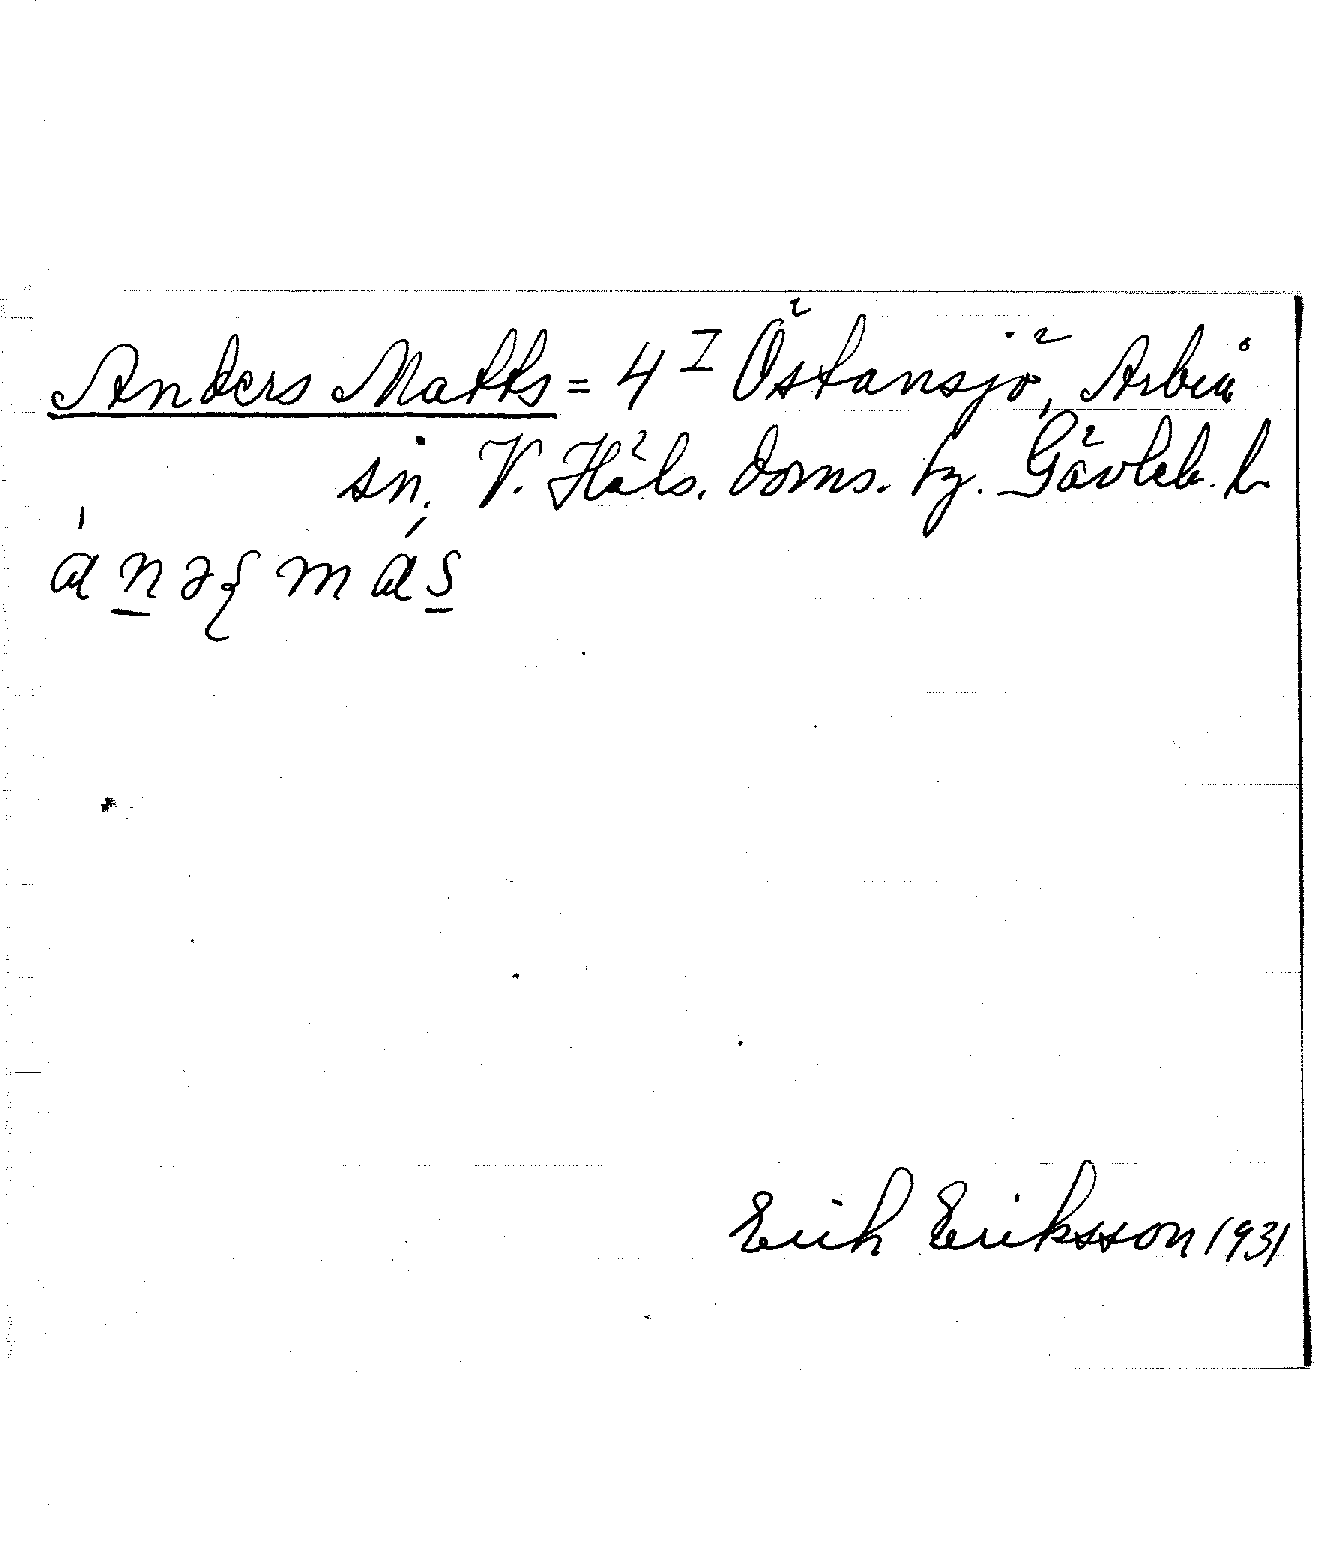 Anders Matts = 4 I Östansjö, Arbrå
sn. V. Häls. doms. tg. Gävleb. l
ánəʂ más
Erik Eriksson 1931